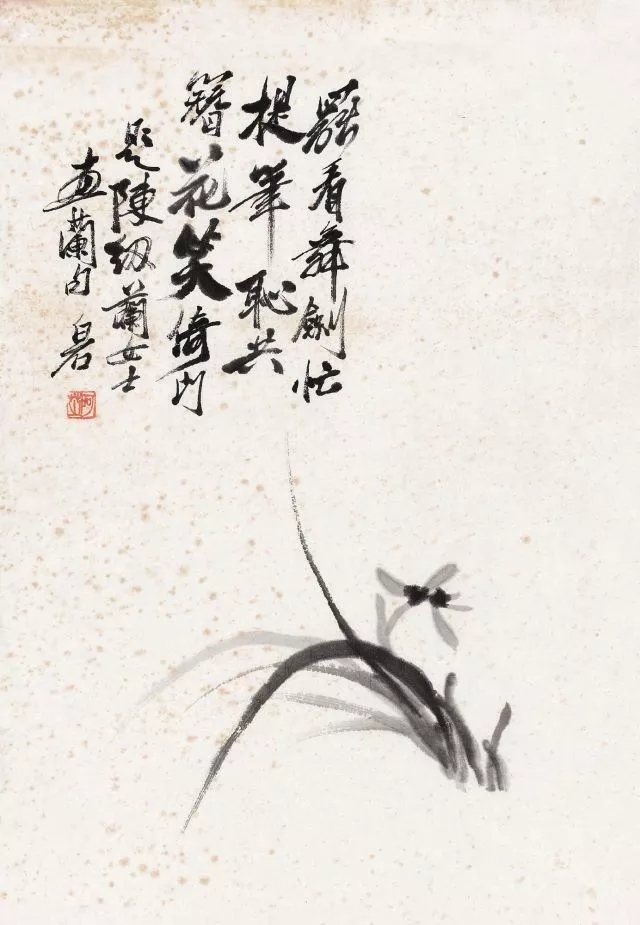 罷看舞劍忙
提筆恥共
簪花笑倚門
題陳紉蘭女士
畫蘭句